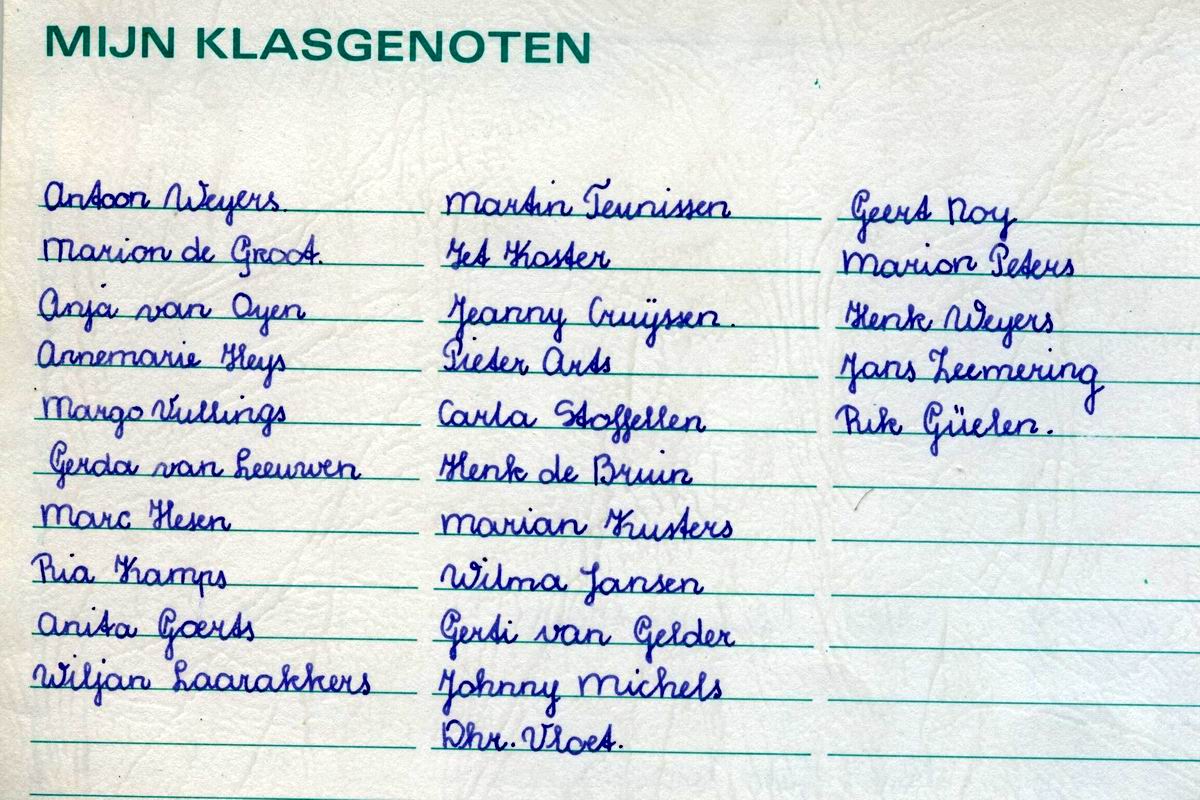 MIJN KLASGENOTEN
Antoon Weyers.
Marion de Groot.
Anja van Oyen
Annemarie Heys
Margo Vullings
Gerda van Leeuwen
Marc Hesen
Ria Kamps
Anita Goerts
Wiljan Laarakkers
Martin Teunissen
Jet Koster
Jeanny Cruÿssen.
Pieter Arts
Carla Stoffellen
Henk de Bruin
Marian Kusters
Wilma Jansen
Gerti van Gelder
Johnny Michels
Dhr. Vloet.
Geert Noy
Marion Peters
Henk Weyers
Jans Zeemering
Rik Güelen.